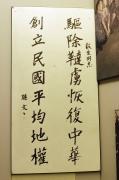 驅除韃虜恢復中華
創立民國平均地權
孫文